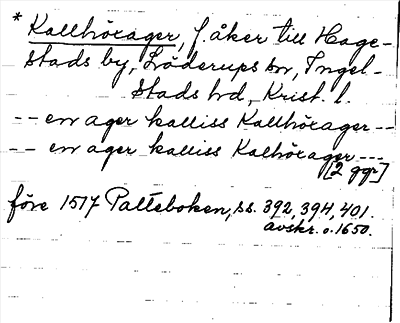 * Kallhörager, f. åker till Hage-
stads by, Löderups sn, Ingel-
stads hd, Krist. l.
-- en ager kalliss Kallhörager --
-- en ager kalliss Kalhörager ---
[2 ggr]
före 1517 Palteboken, ss. 392, 394, 401.
avskr. o. 1650.